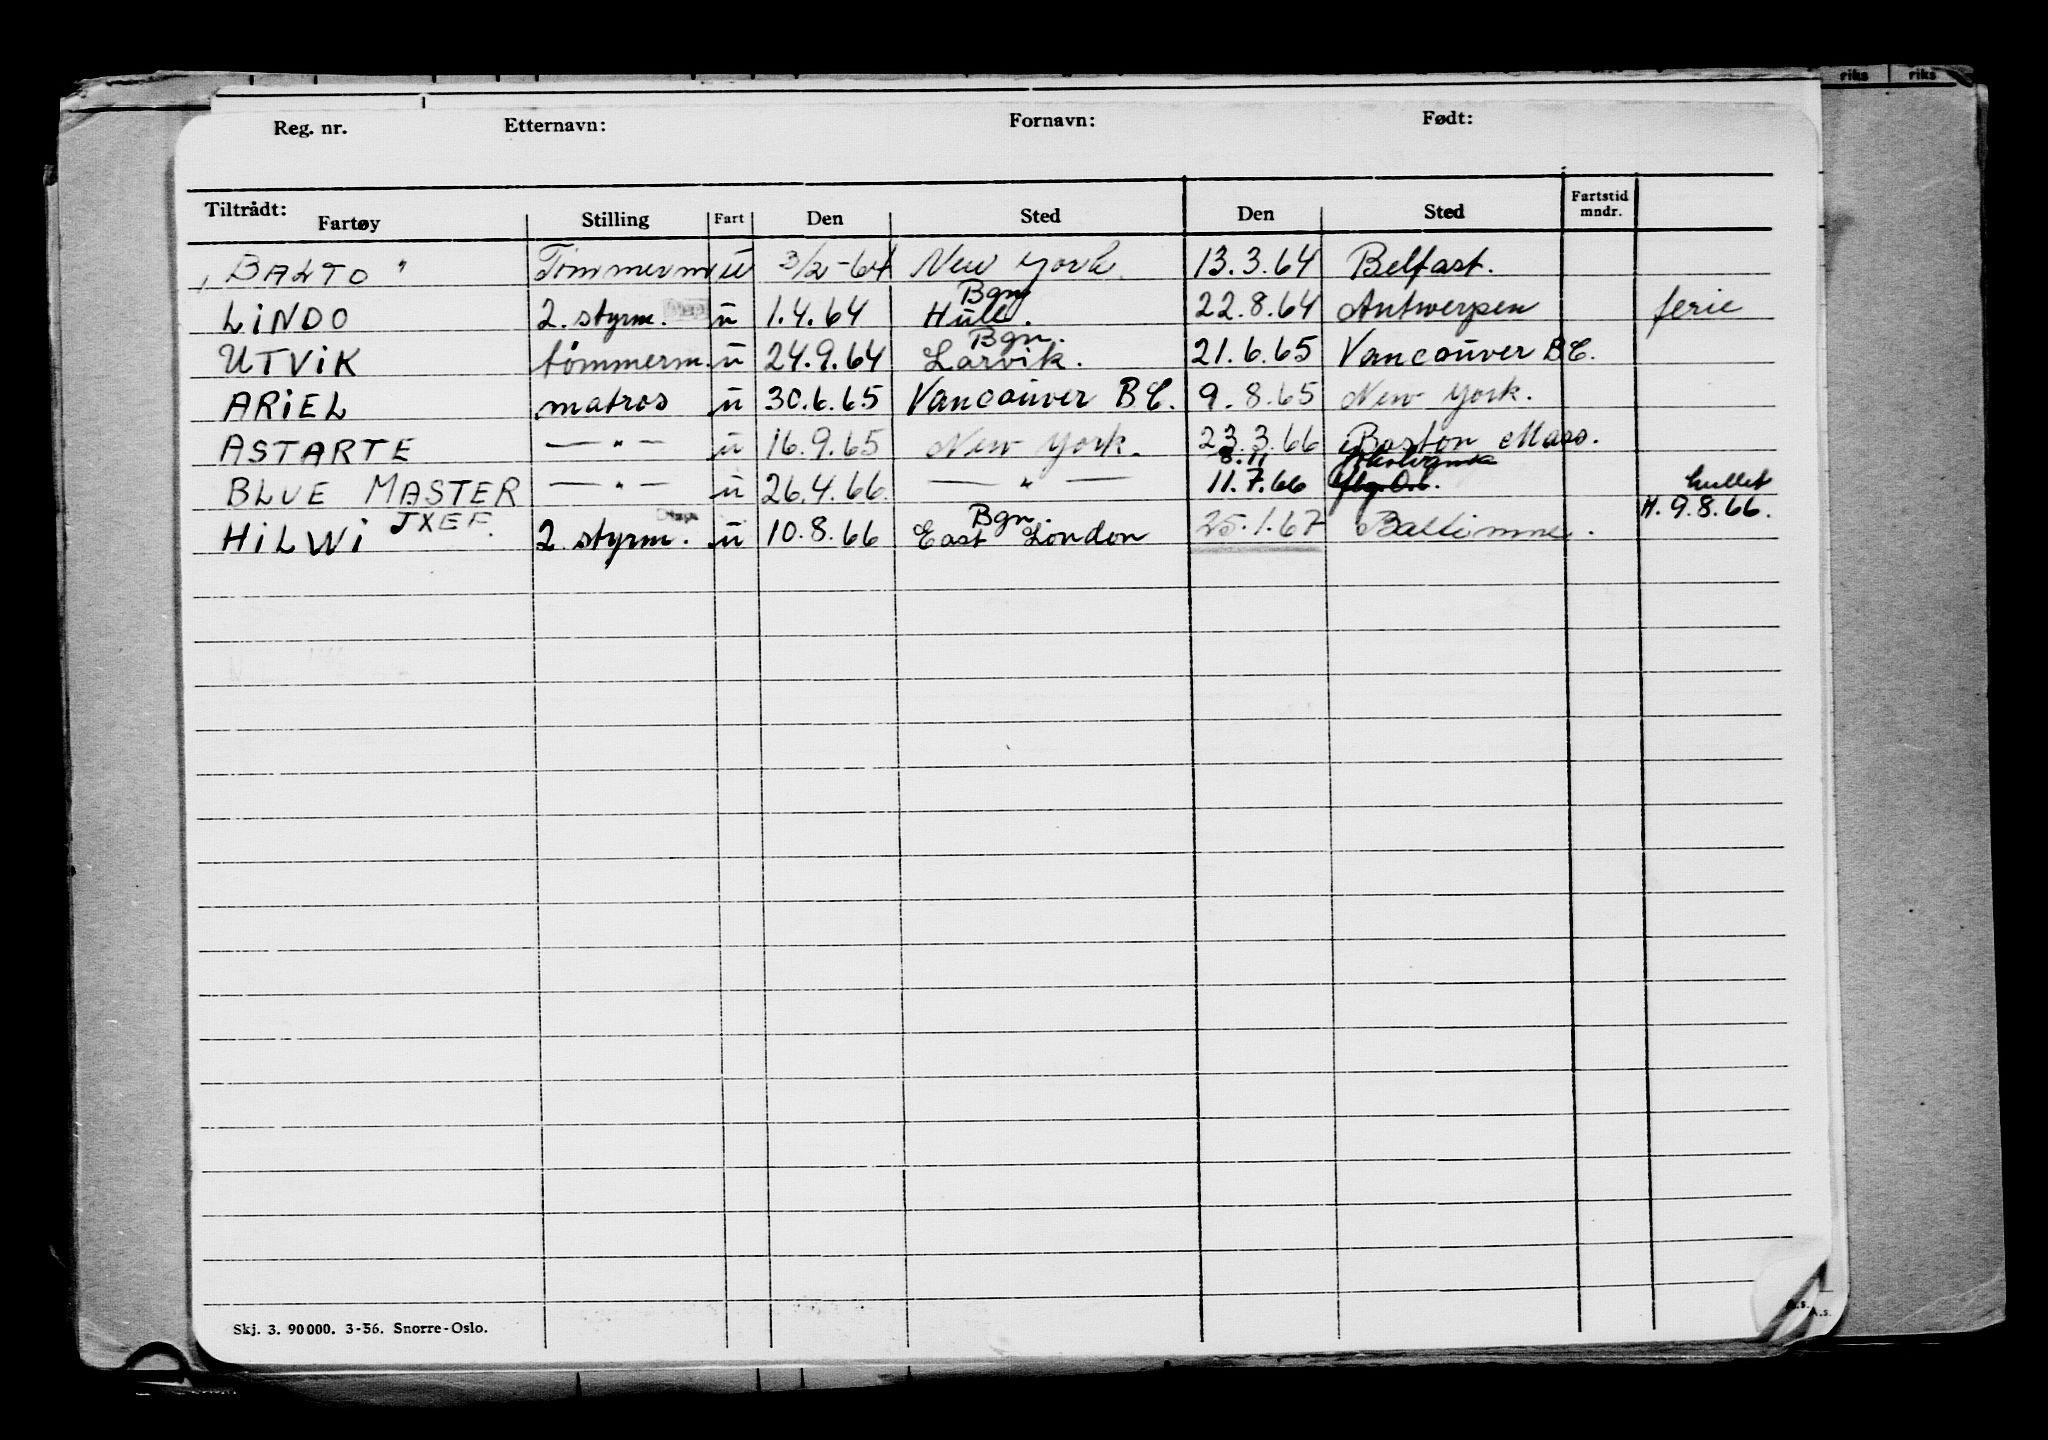 riks riks
Reg. nr. Etternavn: Fornavn: Født:
Tiltrådt: Fartøy Stilling Fart Den Sted Den Sted Fartstid mndr.
"BALTO" Tømmerm ū 3/2-64 New York. 13.3.64 Belfast.
Bgn
LiNDO 2. styrm. ū 1.4.64 Hull. 22.8.64 Antwerpen ferie
Bgn.
UTViK tømmerm. ū 24.9.64 Larvik. 21.6.65 Vancouver BC.
ARiEL matros ū 30.6.65 Vancouver BC. 9.8.65 New York.
ASTARTE —"— ū 16.9.65 New York. 23.3.66 Boston Mass.
8.11
BLUE MASTER —"— ū 26.4.66 —"— 11.7.66
H. 9.8.66.
JXEF. Bgn.
HiLWi 2 styrm. ū 10.8.66 East London 25.1.67 Baltimore.
Skj. 3. 90000. 3-56. Snorre-Oslo.
A.s.